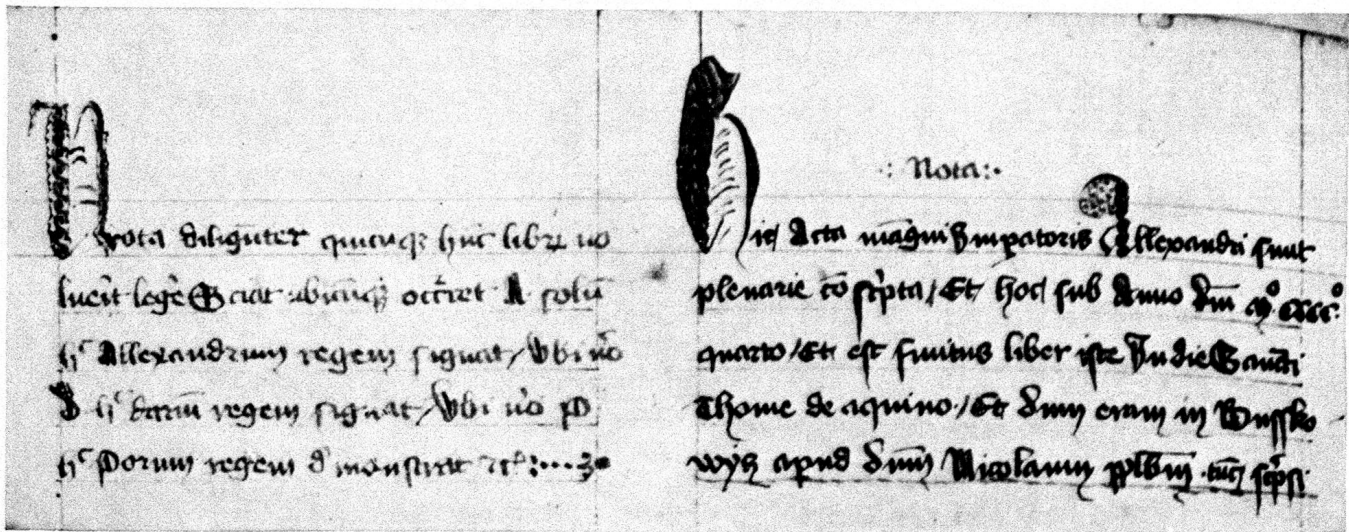 Nota diligenter quicunqz hunc libru uo
luerit legere Sciat ubicunqz occurret A solum
hc Allexandrum regem signat / Vbi uo
D hc darium regem signat / Vbi uo P
hc Porum regem demonstrat etc
: Nota :
Hic Acta magni Impatoris Allexandri sunt
plenarie coscripta / Et hoc sub Anno dm mo cccco
quarto / Et est finitus liber iste In die Sancti
Thome de aquino / Et dum eram in Bussko
wycz apud dnm Nicolaum plbm tunc scripsi